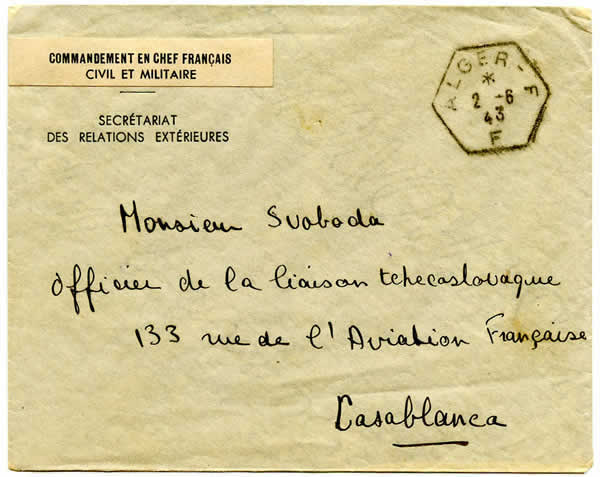 COMMANDEMENT EN CHEF FRANÇAIS
CIVIL ET MILITAIRE
SECRÉTARIAT
DES RELATIONS EXTÉRIEURES
ALGER-F
*
2 -6
43
F
Monsieur Svoboda
Officier de la liaison tchecoslovaque
133 rue de l'Aviation Française
Casablanca